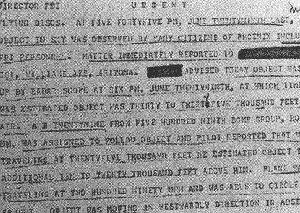 DIRECTOR FBI URGENT
FLYING DISCS. AT FIVE FORTYFIVE PM, JUNE TWENTYNINTH LAST,
OBJECT IN SKY WAS OBSERVED BY MANY CITIZENS OF PHOENIX INCLUDING
FBI PERSONNEL. MATTER IMMEDIATELY REPORTED TO
ARIZONA. ADVISED TODAY OBJECT WAS
UP BY RADAR SCOPE AT SIX PM, JUNE TWENTYNINTH, AT WHICH TIME
WAS ESTIMATED OBJECT WAS THIRTY TO THIRTYFIVE THOUSAND FEET
A B TWENTYNINE FROM FIVE HUNDRED NINTH BOMB GROUP,
WAS ASSIGNED TO FOLLOW OBJECT AND PILOT REPORTED THAT
TRAVELING AT TWENTYFIVE THOUSAND FEET HE ESTIMATED OBJECT
ADDITIONAL TEN TO TWENTY THOUSAND FEET ABOVE HIM. PLANE
TRAVELING AT TWO HUNDRED NINETY MPH AND WAS ABLE TO CIRCLE
OBJECT WAS MOVING IN WESTWARDLY DIRECTION